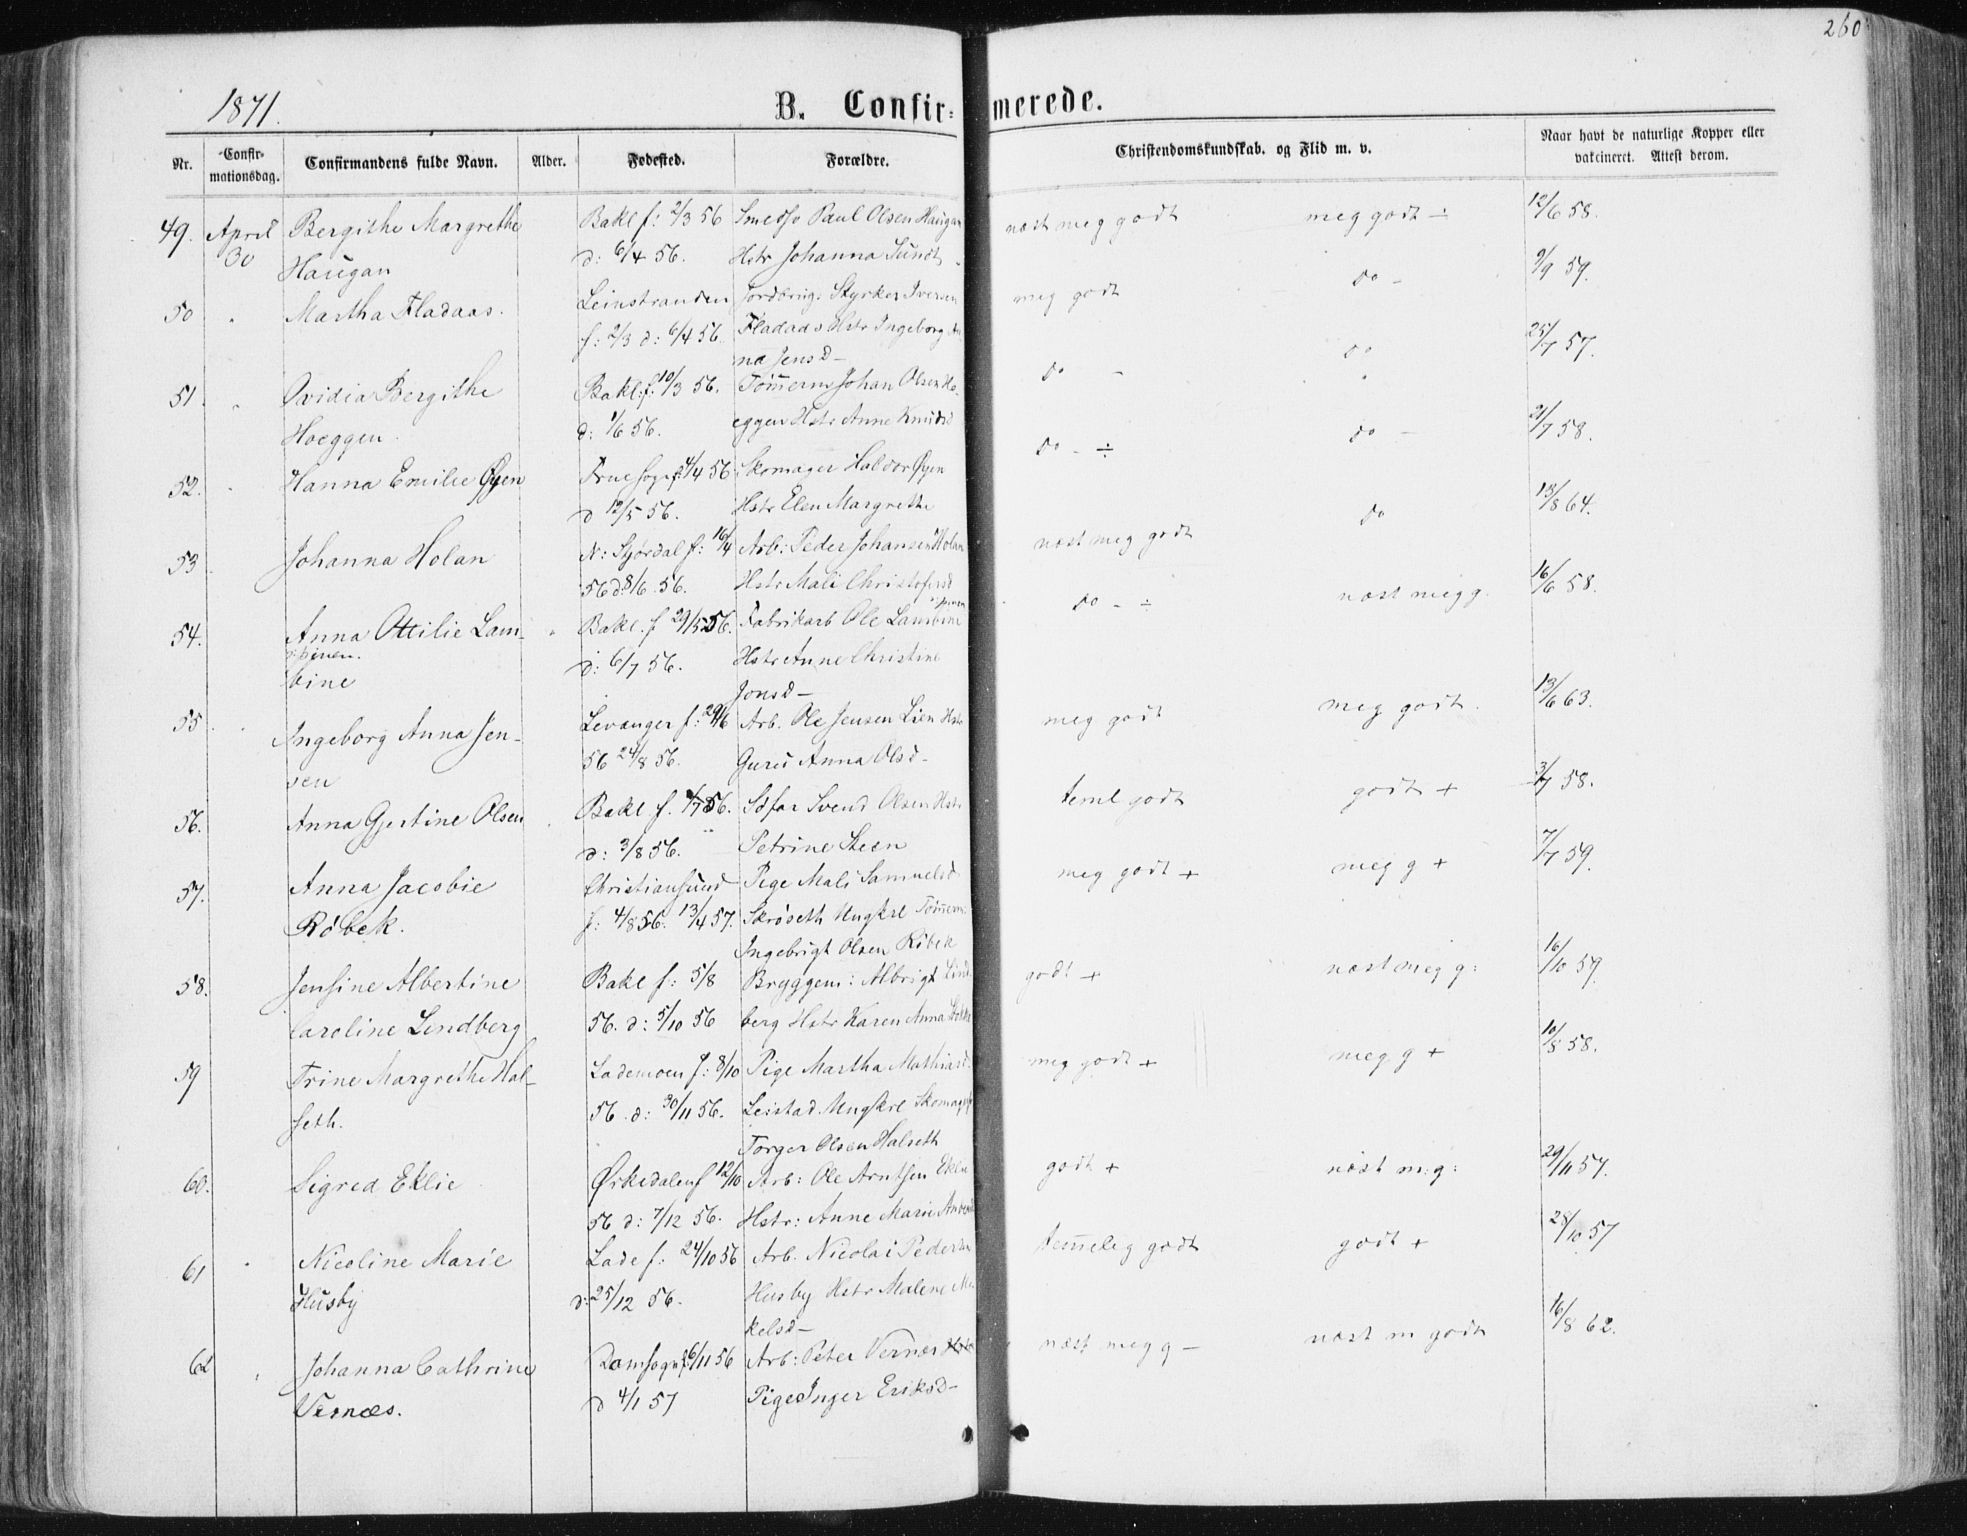 260
1871.
B. Confir-
merede.
Nr.
Confir-
mationsdag.
Confirmandens fulde Navn.
Alder.
Fødested.
Forældre.
Christendomskundskab. og Flid m. v.
Naar havt de naturlige Kopper eller
vakcineret. Attest derom.
49. April Bergithe Margrethe Bakl f: 2/3 56 Paul Olsen Haugan næst meg godt meg godt ÷ 12/6 58.
30 Haugan d: 6/4 56. Hstr Johanna Sundt
50 Martha Fladaas. Leinstranden Jordbrugs Styrker Iversen meg godt do - 9/9 59.
f: 2/3 d: 6/4 56. Fladaas Hstr Ingeborg An
na Jensd-
51. Ovidia Bergithe Bakl: f. 10/3 56. Tømerm Johan Olsen Ho- do - do 25/7 57.
Hoeggen. d: 1/6 56. eggen Hstr Anne Knudsd
52. Hanna Emilie Øyen Frue sogn f: 4/4 56 Skomager Haldor Øyen do - ÷ do - 21/7 58.
d 12/5 56. Hstr Elen Margrethe
53 Johanna Holan N: Stjørdal f: 16/4 Arb: Peder Johansen Holan næst meg godt do 13/8 64.
56 d: 8/6 56. Hstr Mali Christofersd
54. Anna Ottilie Lam- Bakl. f 29/5 56. Fabrikarb Ole Lambine do - ÷ næst meg g. 16/6 58.
pinen.
bine d: 6/7 56. Hstr Anne Christine
Jonsd-
55 Ingeborg Anna Jen- Levanger f: 29/6 Arb. Ole Jensen Lien Hstr meg godt meg godt. 13/6 63.
sen 56 24/8 56. Guru Anna Olsd-
56. Anna Gjertine Olsen Bakl f. 4/7 56. Søfar Svend Olsen Hstr teml godt godt + 3/7 58.
d: 3/8 56. Petrine Steen
57. Anna Jacobie Christiansund Pige Mali Samuelsd meg godt + meg g + 7/7 59.
Røbek. f: 4/8 56. 13/4 57. Skrøseth Ungkrl Tømerm:
Ingebrigt Olsen Røbek
58. Jensine Albertine Bakl f: 5/8 Bryggem: Albrigt Lind- godt + næst meg g: 16/10 59.
Caroline Lindberg 56. d: 5/10 56 berg Hstr Karen Anna
59 Trine Margrethe Hal- Lademoen f: 8/10 Pige Martha Mathiasd. meg godt + meg g + 10/8 58.
seth. 56. d: 30/11 56. Leistad. Ungkrl Skomag
Torger Olsen Halseth
60. Sigred Eklie Ørkedalen f 12/10 Arb: Ole Arntsen Eklie godt + næst m: g: 29/11 57.
56 d: 7/12 56. Hstr: Anne Marie
61 Nicoline Marie Lade f: 24/10 56 Arb. Nicolai Pedersen temelig godt godt + 28/10 57
Husby d: 25/12 56. Husby Hstr Malene Mi
kelsd-
62 Johanna Cathrine Domsogn f: 6/11 56 Arb: Peter Vernæs Hstr næst meg g - næst m godt 16/8 62.
Vernæs. d 4/1 57 Pige Inger Eriksd-